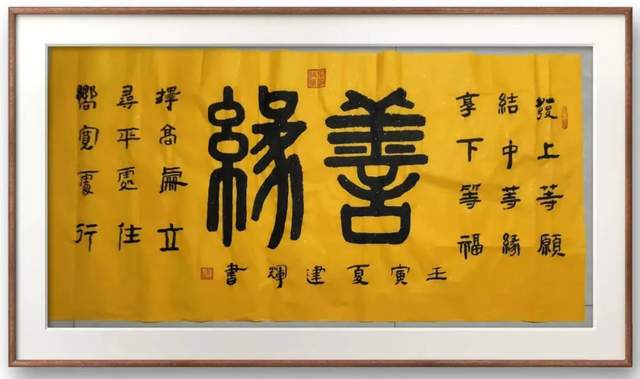 發上等願
結中等緣
享下等福
善緣
擇高處立
尋平處住
嚮寬處行
壬寅夏建輝書